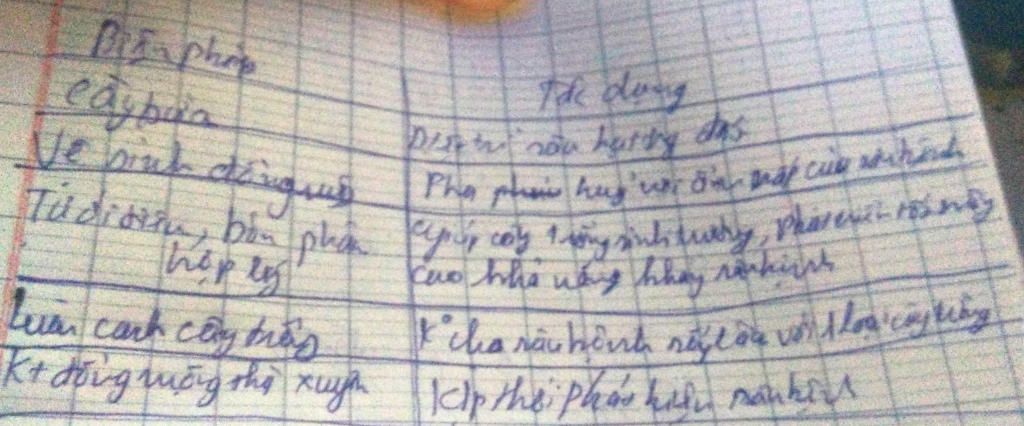 Biện pháp
Tác dụng
Cày bừa
Diệt trừ sâu trong đất
Vệ sinh đồng ruộng
Phá huỷ nơi ẩn nấp của sâu bệnh
Tưới tiêu, bón phân
hợp lý
Giúp cây trồng sinh trưởng, phát triển tốt nâng
cao khả năng kháng sâu bệnh
Luân canh cây trồng
K° cho sâu bệnh với 1 loại cây trồng
K+ đồng ruộng thg xuyên
Kịp thời phát hiện sâu bệnh